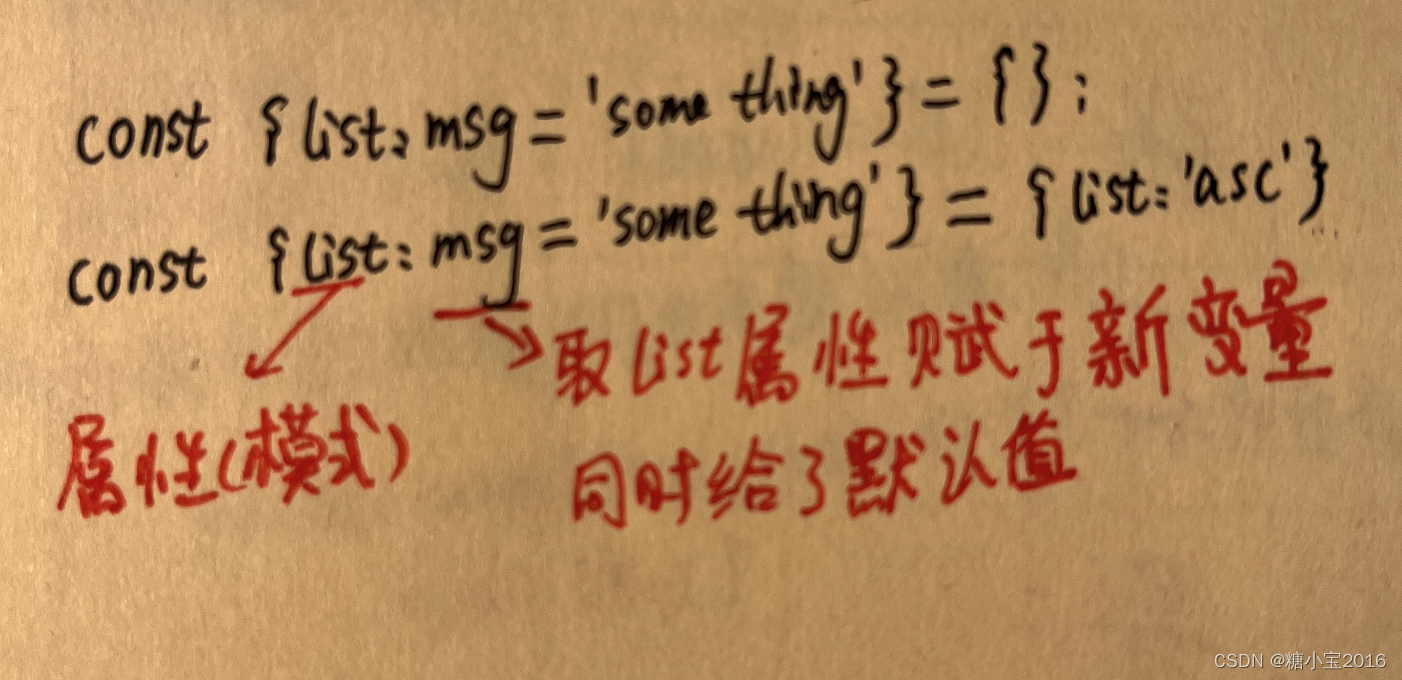 const {list: msg = 'some thing'} = {};
const {list: msg = 'some thing'} = {list: 'asc'}
取list属性赋于新变量
属性(模式)
同时给了默认值
CSDN @糖小宝2016